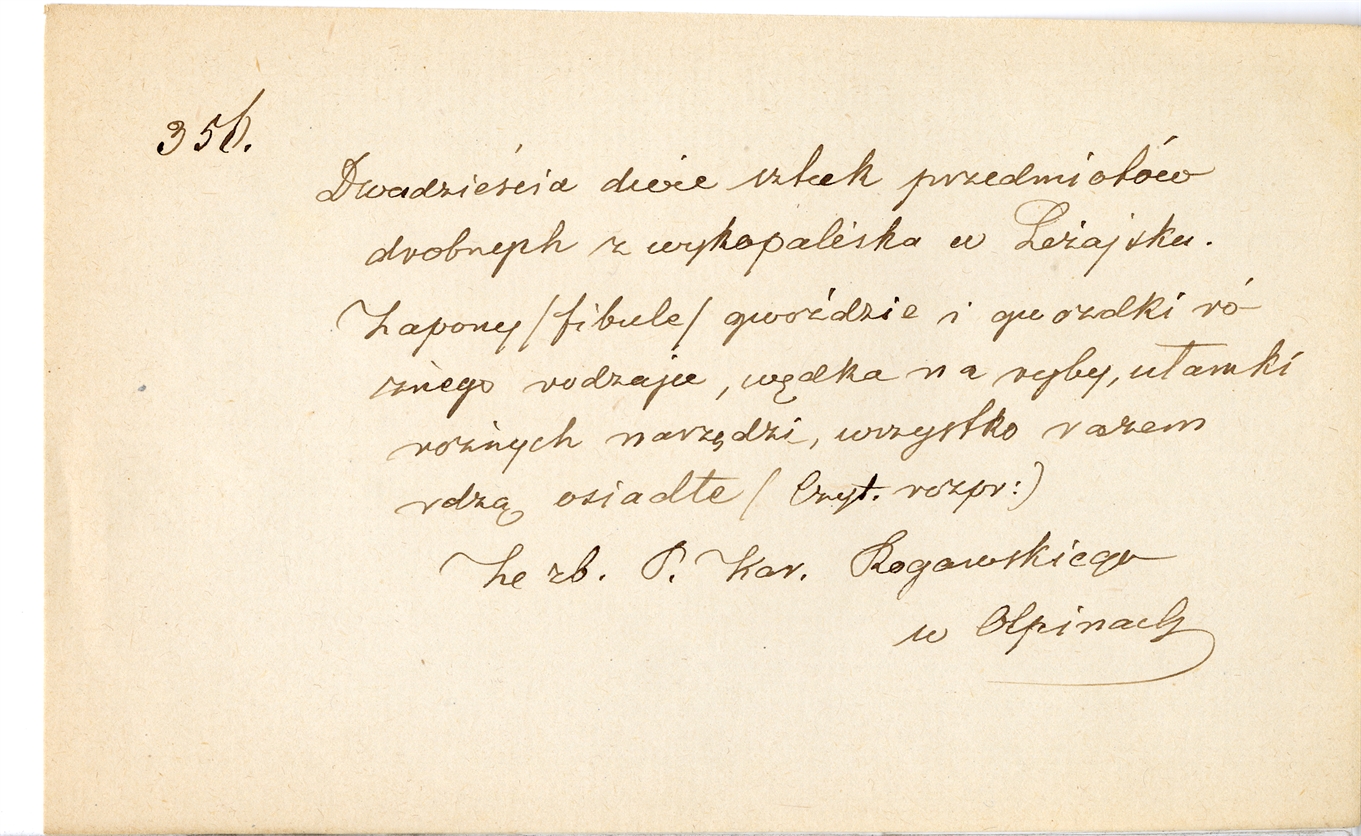 356.
Dwadzieścia dwie sztuk przedmiotów
drobnych z wykopaliska w Leżajsku.
Zapony /fibule/ gwoździe i gwozdki ró-
żnego rodzaju, wędka na ryby, ułamki
rożnych narzędzi, wszystko razem
rdzą osiadłe ( Czyt. rozpr:)
Ze zb. P. Kar. Rogawskiego
w Ołpinach